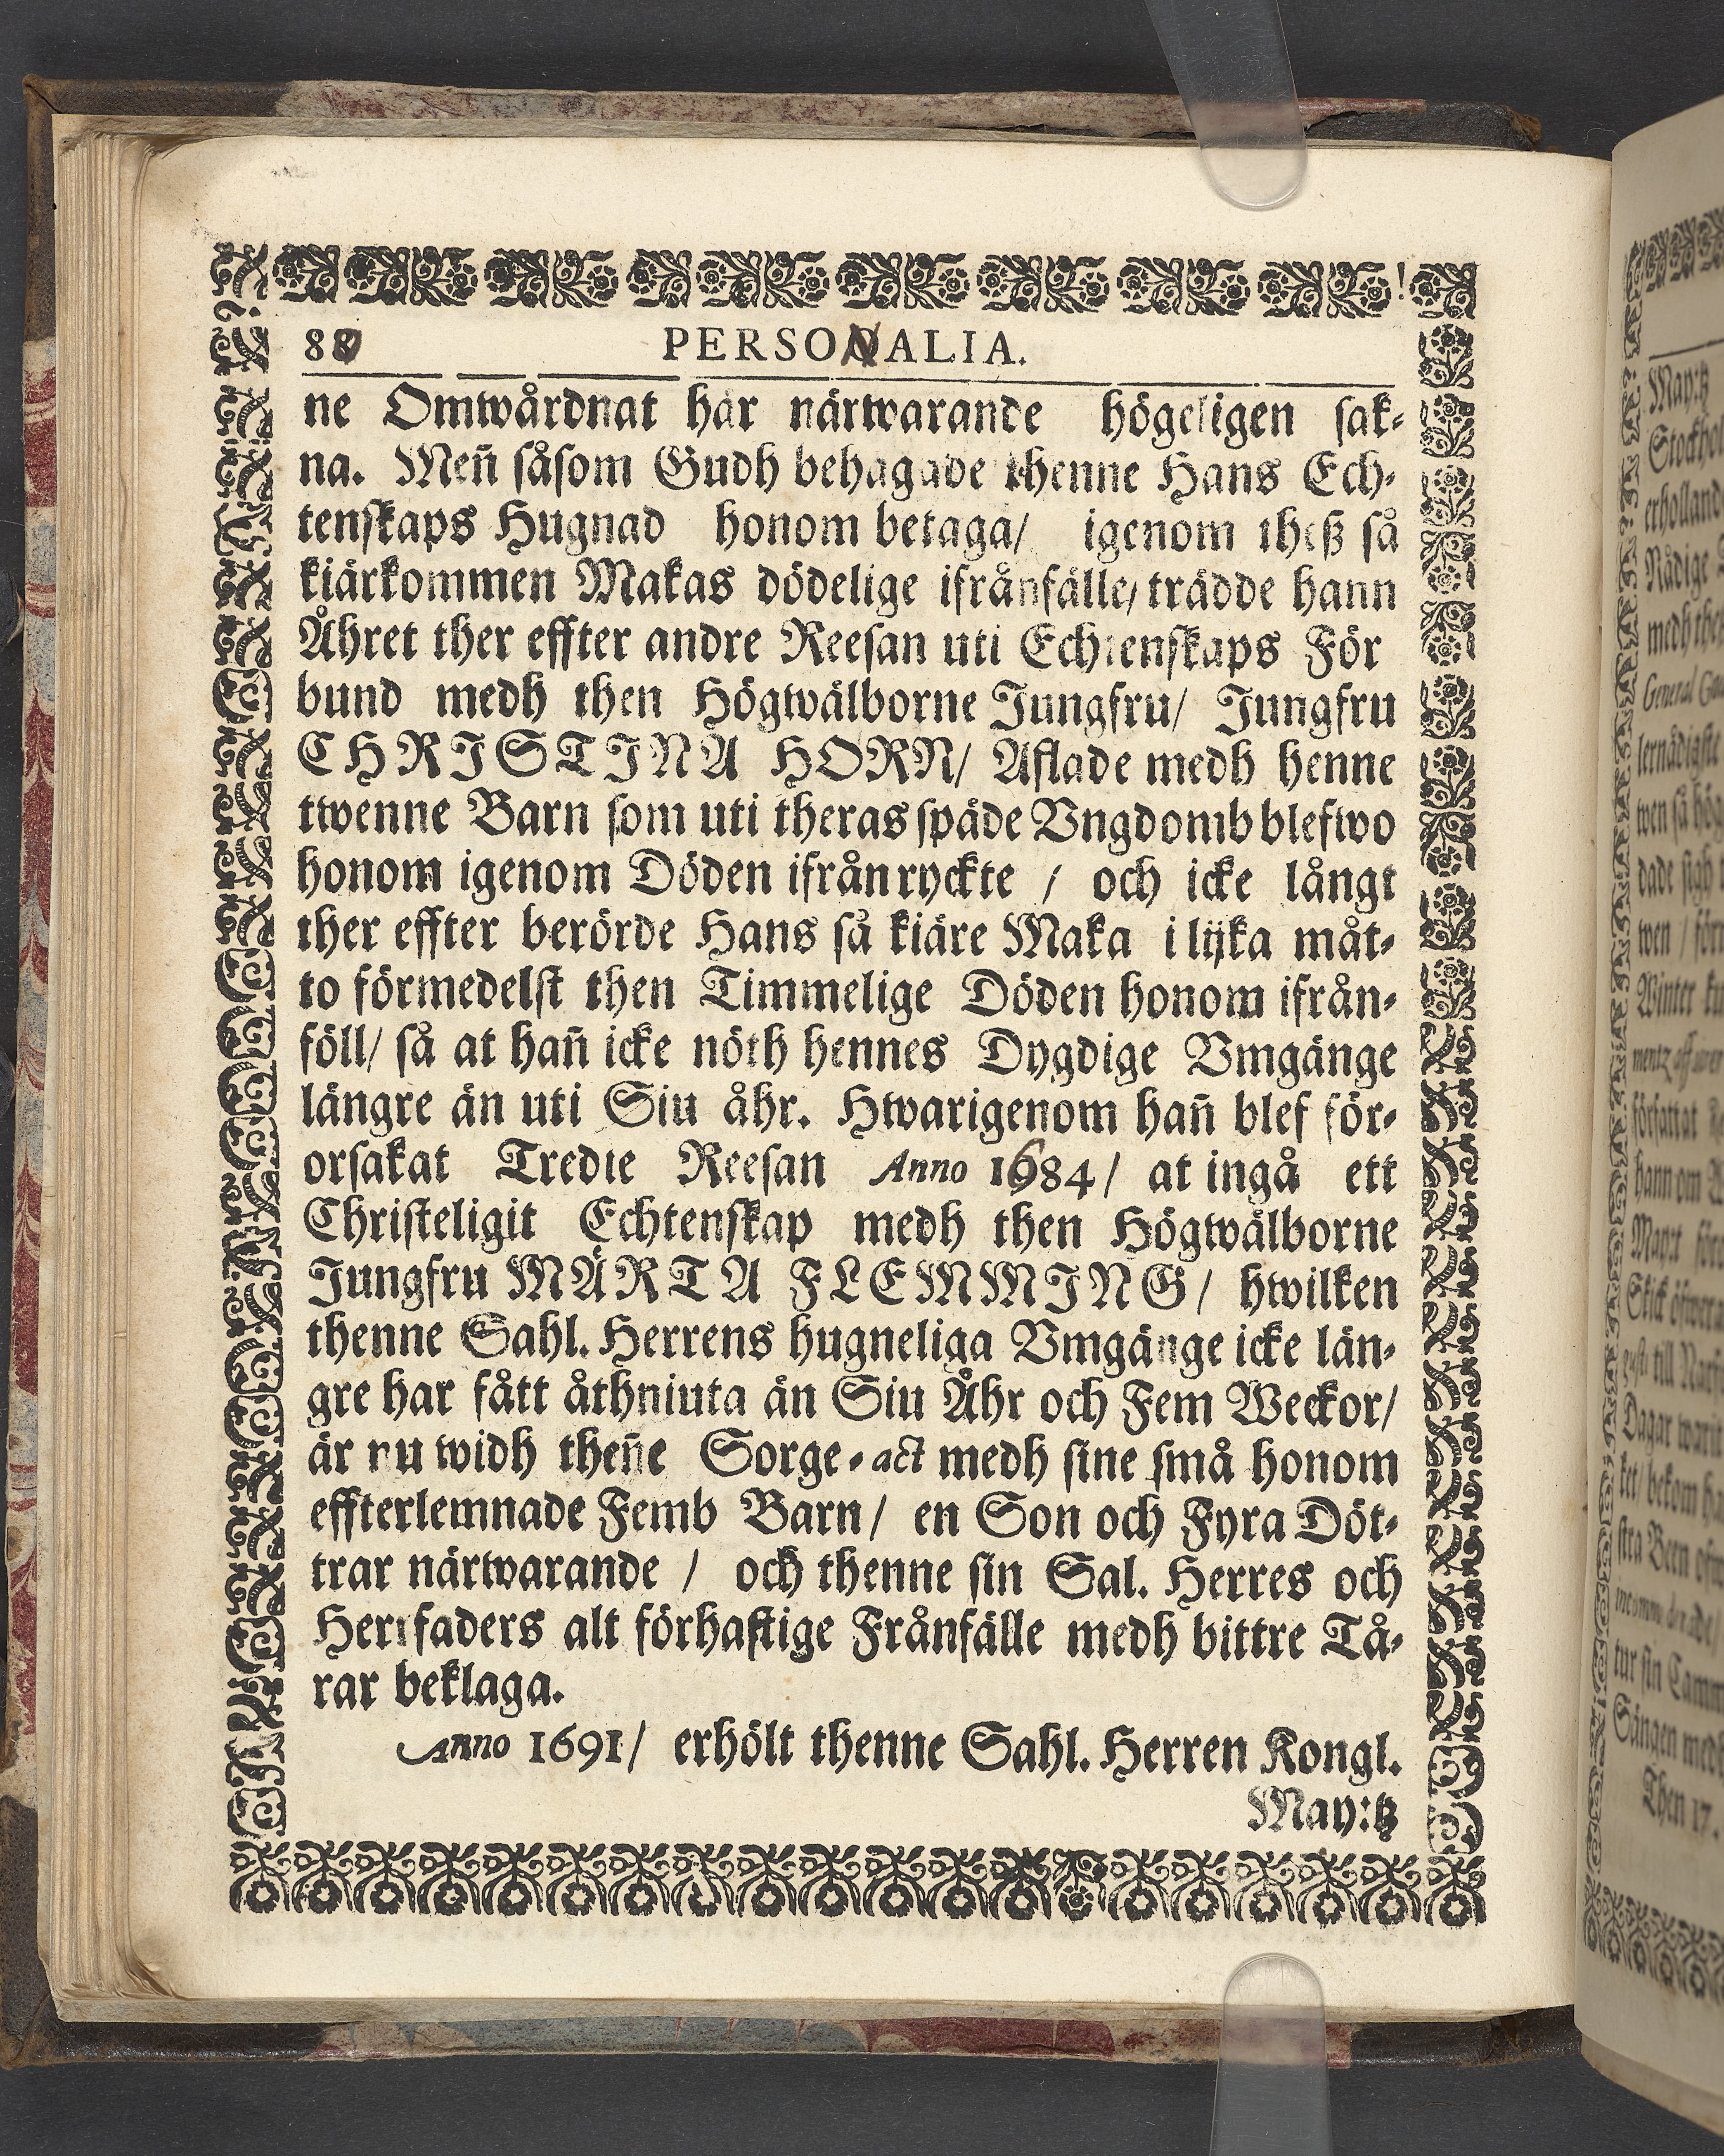 88 PERSONALIA.
ne Omwårdnat här närwarande högeligen sak-
na. Men̄ såsom Gudh behagade thenne Hans Ech-
tenskaps Hugnad honom betaga/ igenom theß så
kiärkommen Makas dödelige ifrånfälle/ trädde hann
Åhret ther effter andre Reesan uti Echtenskaps För
bund medh then Högwälborne Jungfru/ Jungfru
CHRISTINA HORN/ Aflade medh henne
twenne Barn som uti theras späde Vngdomb blefwo
honom igenom Döden ifrånryckte / och icke långt
ther effter berörde Hans så kiäre Maka i lijka måt-
to förmedelst then Timmelige Döden honom ifrån-
föll/ så at han̄ icke nöth hennes Dygdige Vmgänge
längre än uti Siu åhr. Hwarigenom han̄ blef för-
orsakat Tredie Reesan Anno 1684/ at ingå ett
Christeligit Echtenskap medh then Högwälborne
Jungfru MÄRTA FLEMMING/ hwilken
thenne Sahl. Herrens hugneliga Vmgänge icke län-
gre har fått åthniuta än Siu Åhr och Fem Weckor/
är nu widh then̄e Sorge-act medh sine små honom
effterlemnade Femb Barn/ en Son och Fyra Döt-
trar närwarande / och thenne sin Sal. Herres och
Herrfaders alt förhastige Frånfälle medh bittre Tå-
rar beklaga.
Anno 1691/ erhölt thenne Sahl. Herren Kongl.
May:tz
May:tz
Stockhol
erholland
Nådige
medh the
General
lernådigste
wen så hög
dade sigh
wen / förr
Winter ku
mentz aff
författat
hann om
May:t
Stick öfwer
till Narf
Dagar warit
tet/ bekom ha
stra Been
tur sin Camm
Sängen medh
Then 17.